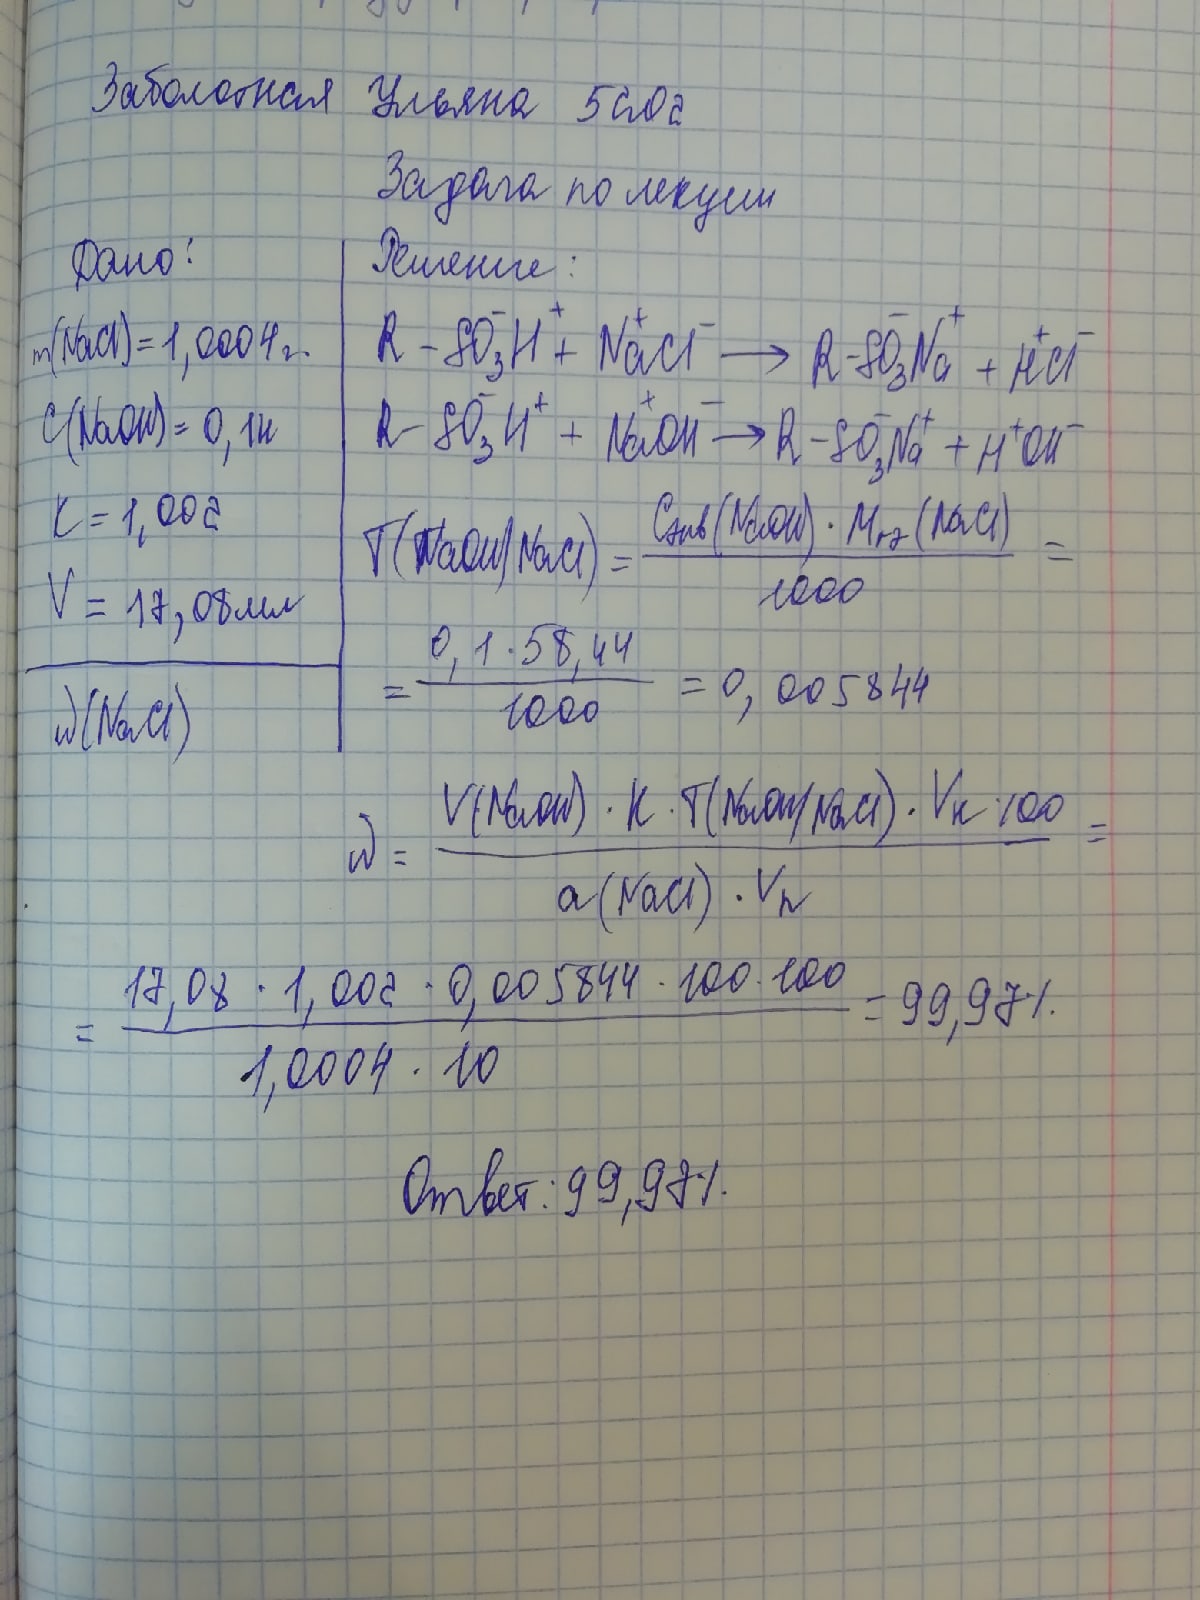 Заболотная Ульяна 5с10г
Задача по лекции
Дано:
m(NaCl) = 1,0004 г.
C(NaOH) = 0,1н
K = 1,002
V = 17,08мл
ω(NaCl)
Решение:
R - SO₃⁻H⁺ + Na⁺Cl⁻ → R-SO₃⁻Na⁺ + H⁺Cl⁻
R - SO₃⁻H⁺ + Na⁺OH⁻ → R - SO₃⁻Na⁺ + H⁺OH⁻
T(NaOH/NaCl) = Cэкв(NaOH) · Mrэ(NaCl) / 1000 =
= 0,1 · 58,44 / 1000 = 0,005844
ω = V(NaOH) · K · T(NaOH/NaCl) · Vк · 100 / a(NaCl) · Vп =
= 17,08 · 1,002 · 0,005844 · 100 · 100 / 1,0004 · 10 = 99,97%.
Ответ: 99,97%.